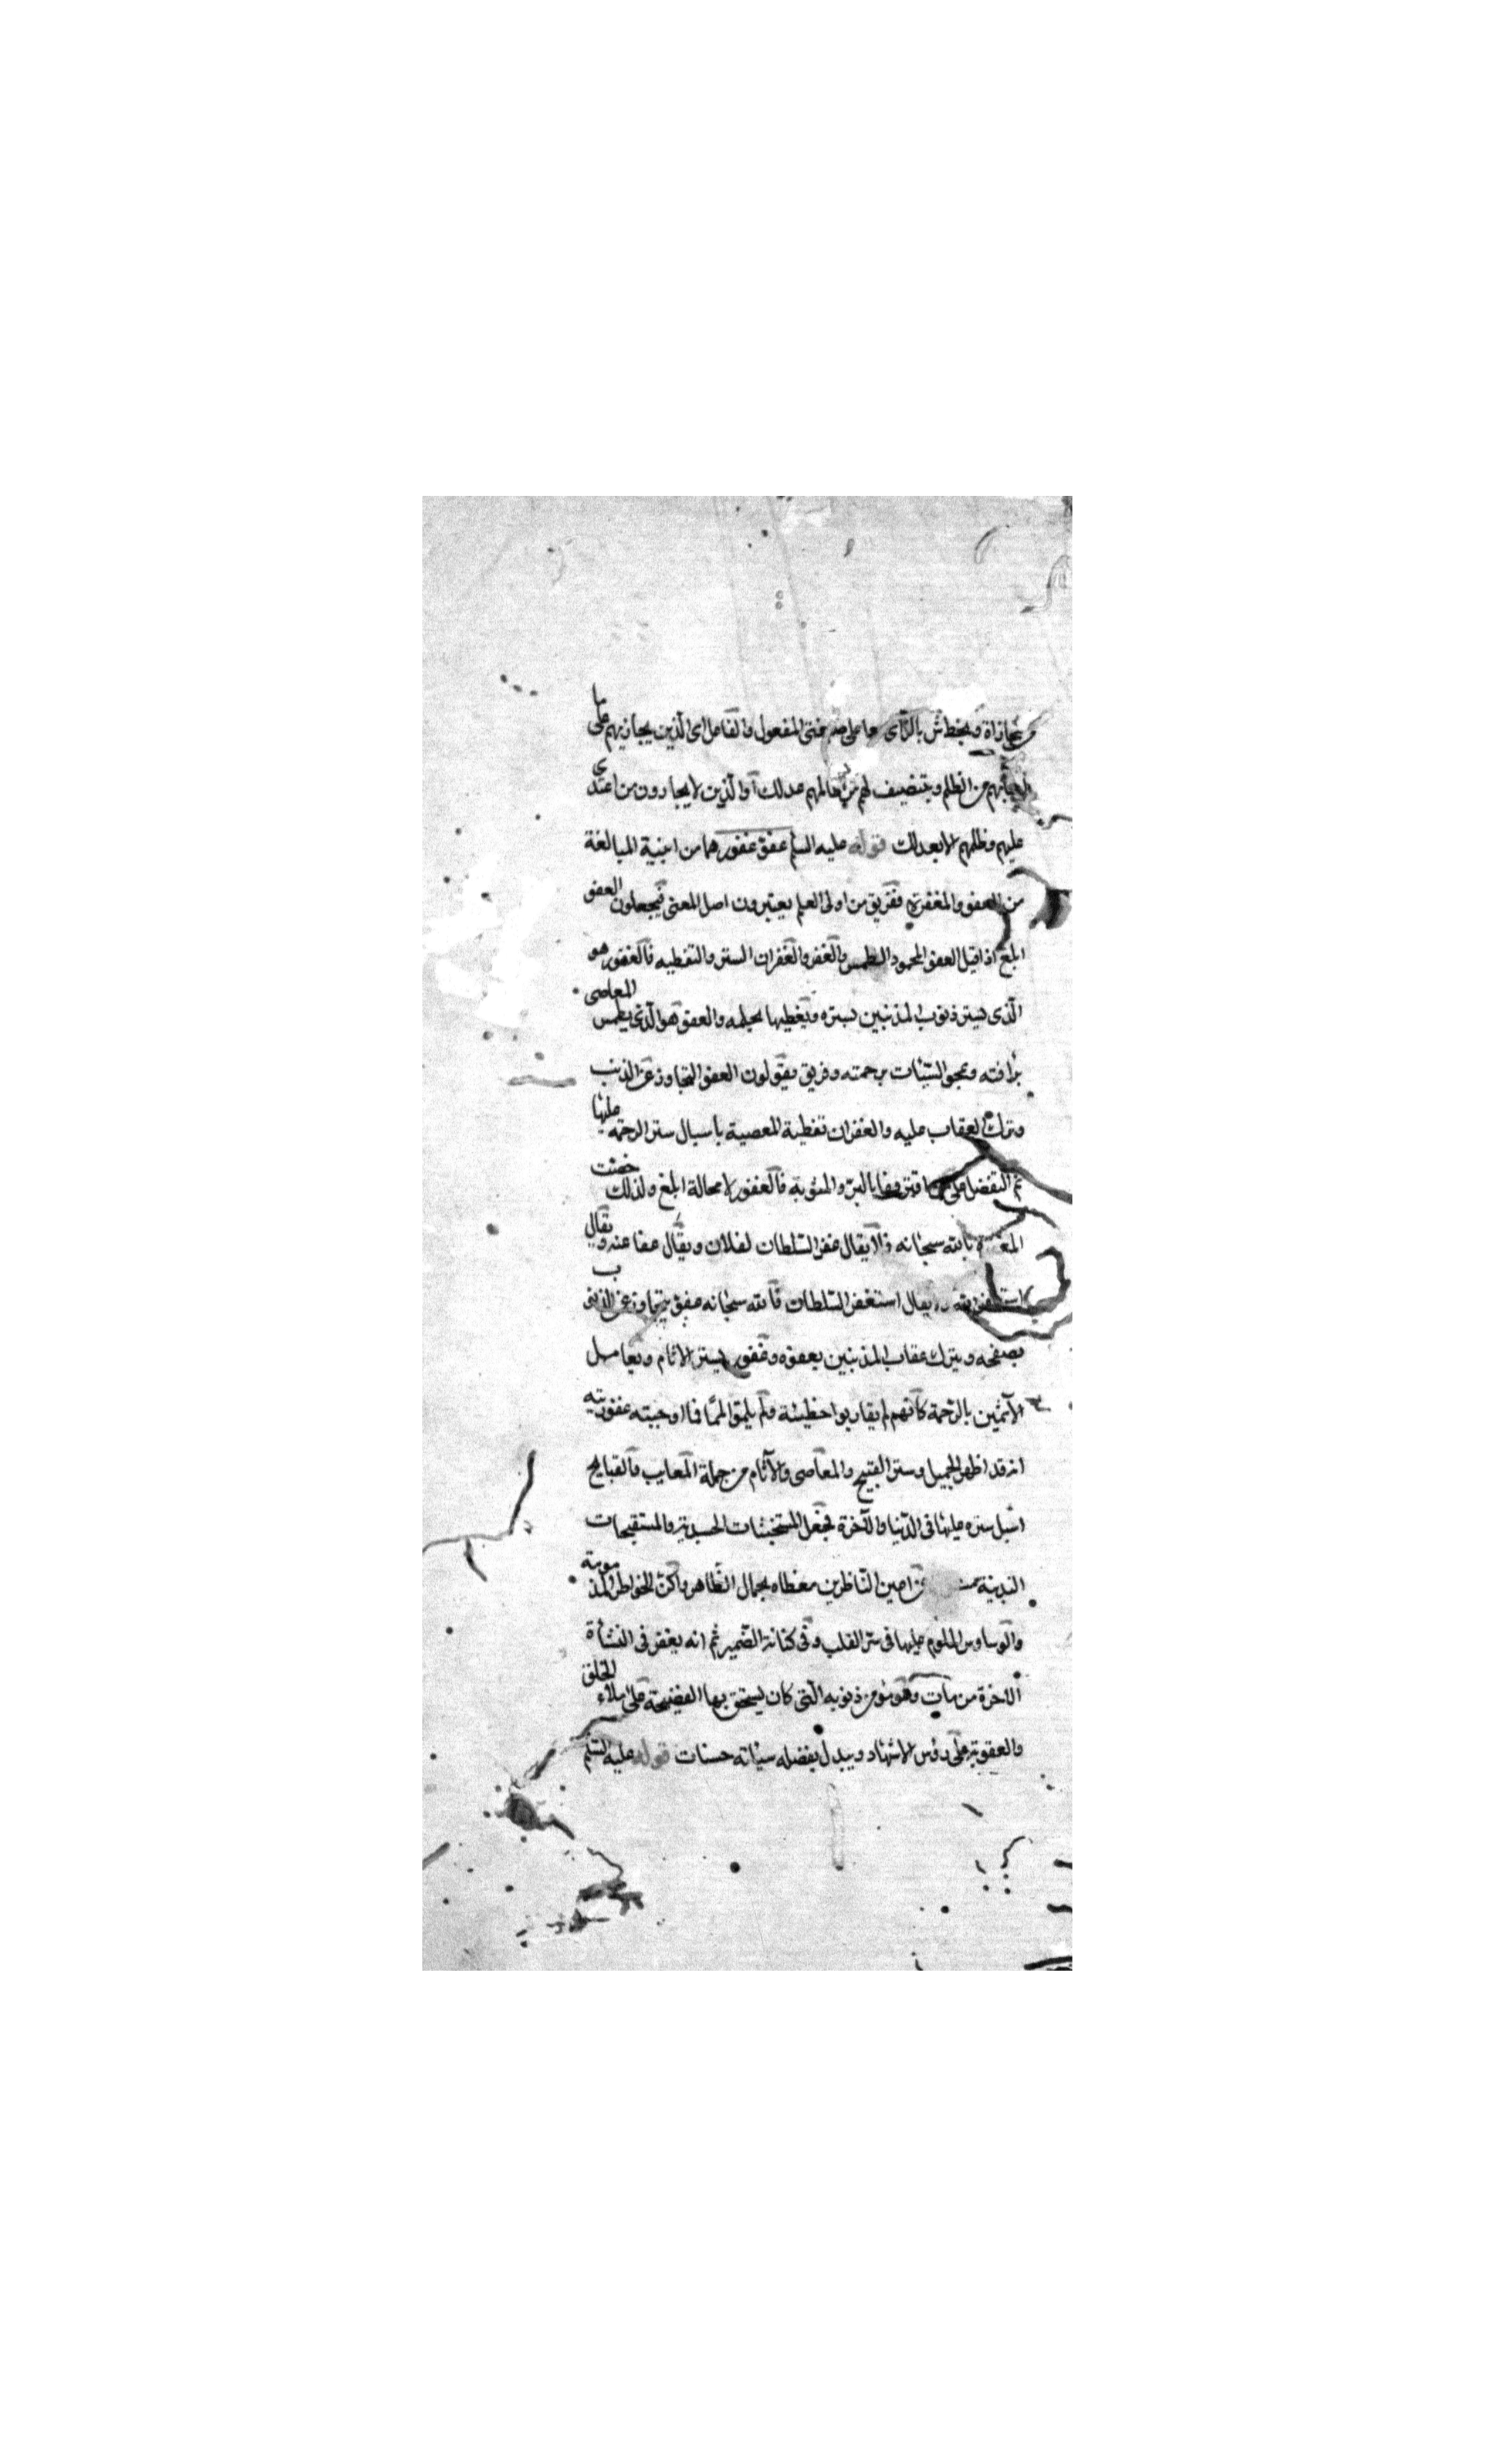 مجازاة وبخط ش بالرأى حاملى ضد معنى المفعول والفاعل اى الذين يجازيهم على ما
من الظلم وينتصف لهم من ظالمهم عدلك او الذين لا يجارون من اعتدى
عليهم وظلمهم لا بعدلك قوله عليه السلم عفو غفور هما من ابنية المبالغة
من العفو والمغفرة ففريق من اولى العلم يعتبرون اصل المعنى فيجعلون العفو
ابلغ اذ اقيل العفو المحو والطمس والغفر والغفران الستر والتغطيه فالغفور هو
الذى يستر ذنوب المذنبين بستره ويغطيها بحلمه والعفو هو الذى يطمس المعاصى
برافته ويمحو السيئات برحمته وفريق يقولون العفو التجاوز عن الذنب
وترك العقاب عليه والغفران تغطية المعصية باسبال ستر الرحمة عليها
ثم التفضل على من اقترفها بالبر والمثوبة فالغفور لا محالة ابلغ ولذلك خصت
المغفرة بالله سبحانه فلا يقال غفر السلطان لفلان ويقال عفا عنه ويقال
استغفر الله ولا يقال استغفر السلطان فالله سبحانه عفو يتجاوز عن الذنب
بصفحه ويترك عقاب المذنبين بعفوه وغفور يستر الاثام ويعامل
الآثمين بالرحمة كانهم لم يقاربوا خطيئة ولم يلموا لمما فما اوجبته غفوريته
انه قد اظهر الجميل وستر القبيح والمعاصى والآثام من جملة المعايب والقبايح
اسبل ستره عليها فى الدنيا والآخرة فجعل المستخبثات الجسدية والمستقبحات
البدنية عن اعين الناظرين مغطاه بجمال الظاهر واكن الخواطر المذمومة
والوساوس الملوم عليها فى ستر القلب وفى كنانة الضمير ثم انه يغفر فى النشأة
الاخرة من مات وهو مؤمن ذنوبه التى كان يستحق بها الفضيحة على ملاء الخلق
والعقوبة على رؤس الاشهاد ويبدل بفضله سيئاته حسنات قوله عليه السلم